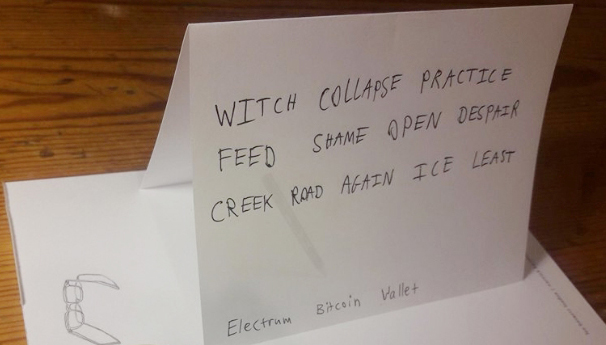 WITCH COLLAPSE PRACTICE
FEED SHAME OPEN DESPAIR
CREEK ROAD AGAIN ICE LEAST
Electrum Bitcoin Wallet